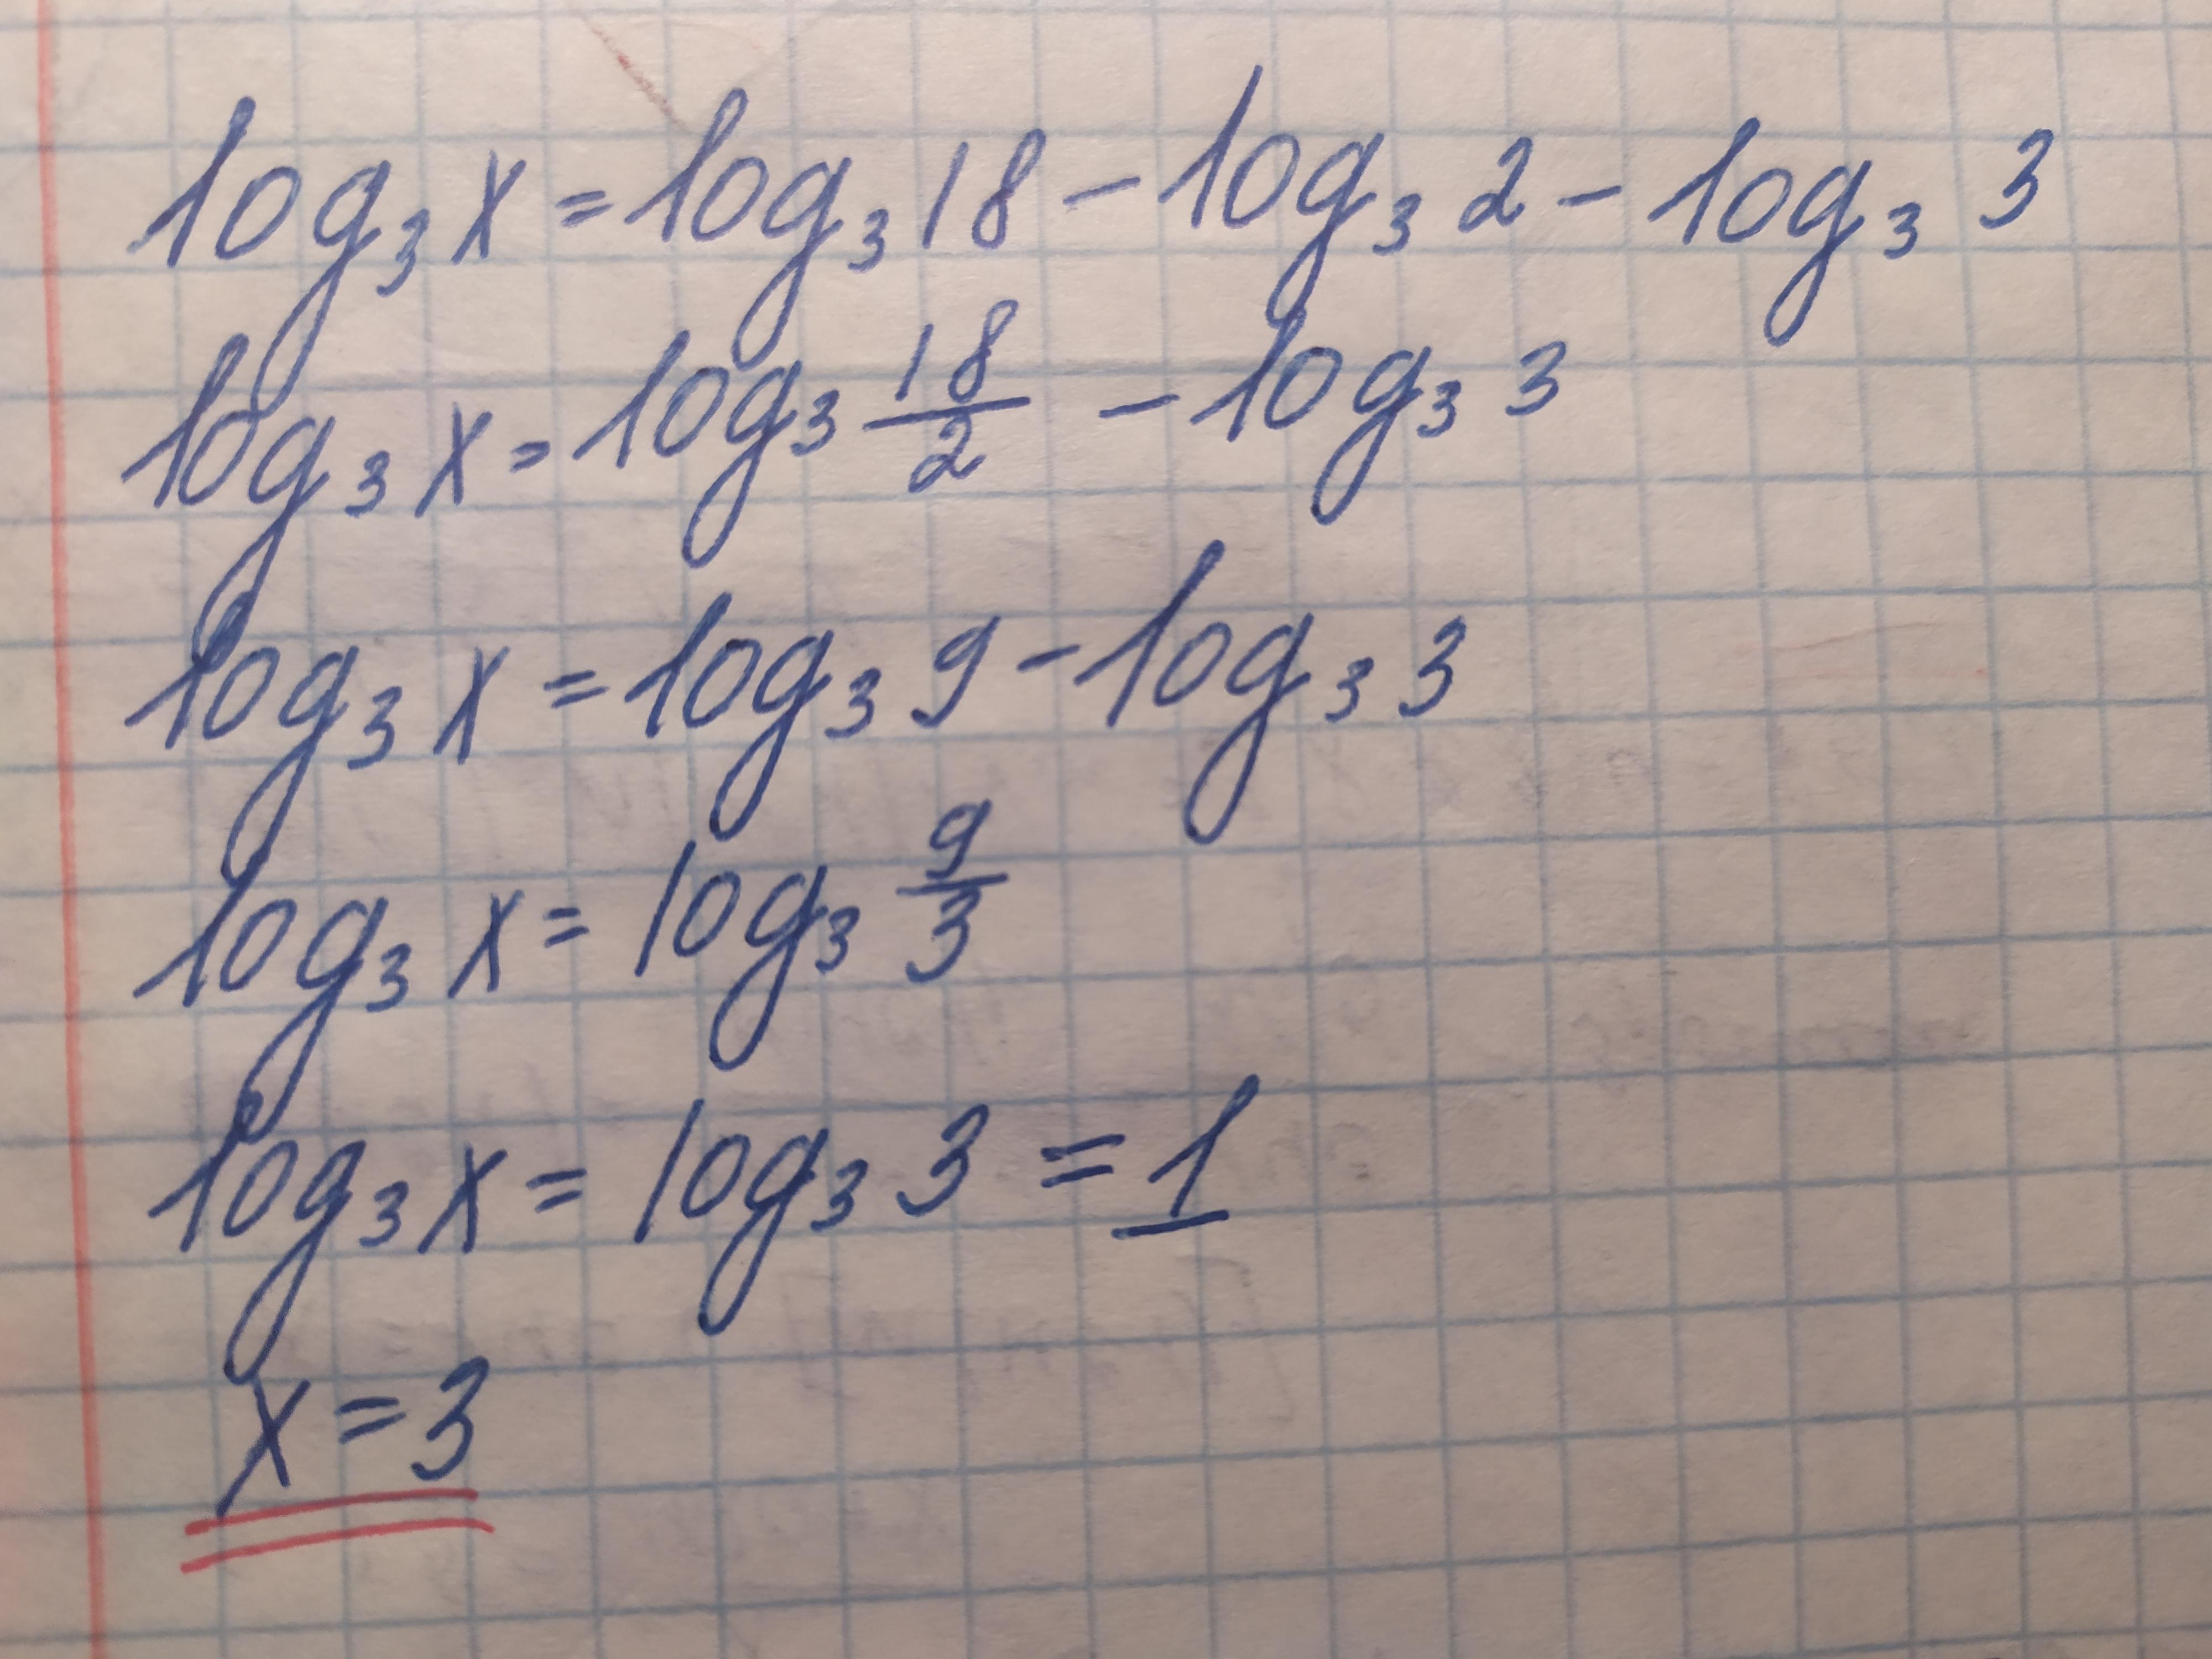 log₃ x = log₃ 18 - log₃ 2 - log₃ 3
log₃ x = log₃ 18/2 - log₃ 3
log₃ x = log₃ 9 - log₃ 3
log₃ x = log₃ 9/3
log₃ x = log₃ 3 = 1
x = 3